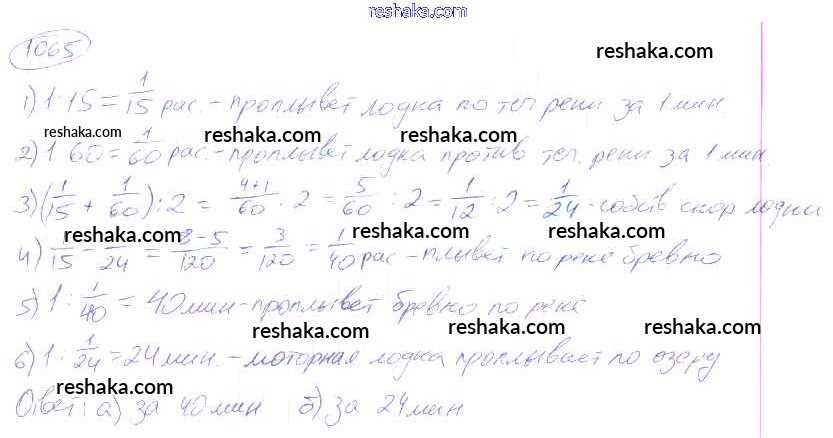 reshaka.com
1065
reshaka.com
1) 1:15 = 1/15 рас. - проплывёт лодка по теч реки за 1 мин.
reshaka.com
reshaka.com reshaka.com reshaka.com
2) 1 60 = 1/60 рас. - проплывёт лодка против теч. реки за 1 мин.
reshaka.com
3) (1/15 + 1/60) : 2 = 4+1/60 · 2 = 5/60 : 2 = 1/12 : 2 = 1/24 - собств скор лодки
reshaka.com reshaka.com reshaka.com
4) 1/15 - /24 = 8-5/120 = 3/120 = 1/40 рас - плывет по реке бревно
reshaka.com
5) 1 : 1/40 = 40 мин - проплывёт бревно по реке
reshaka.com reshaka.com
6) 1 : 1/24 = 24 мин. - моторная лодка проплывает по озеру
reshaka.com reshaka.com
Ответ: а) за 40 мин б) за 24 мин
reshaka.com
reshaka.com